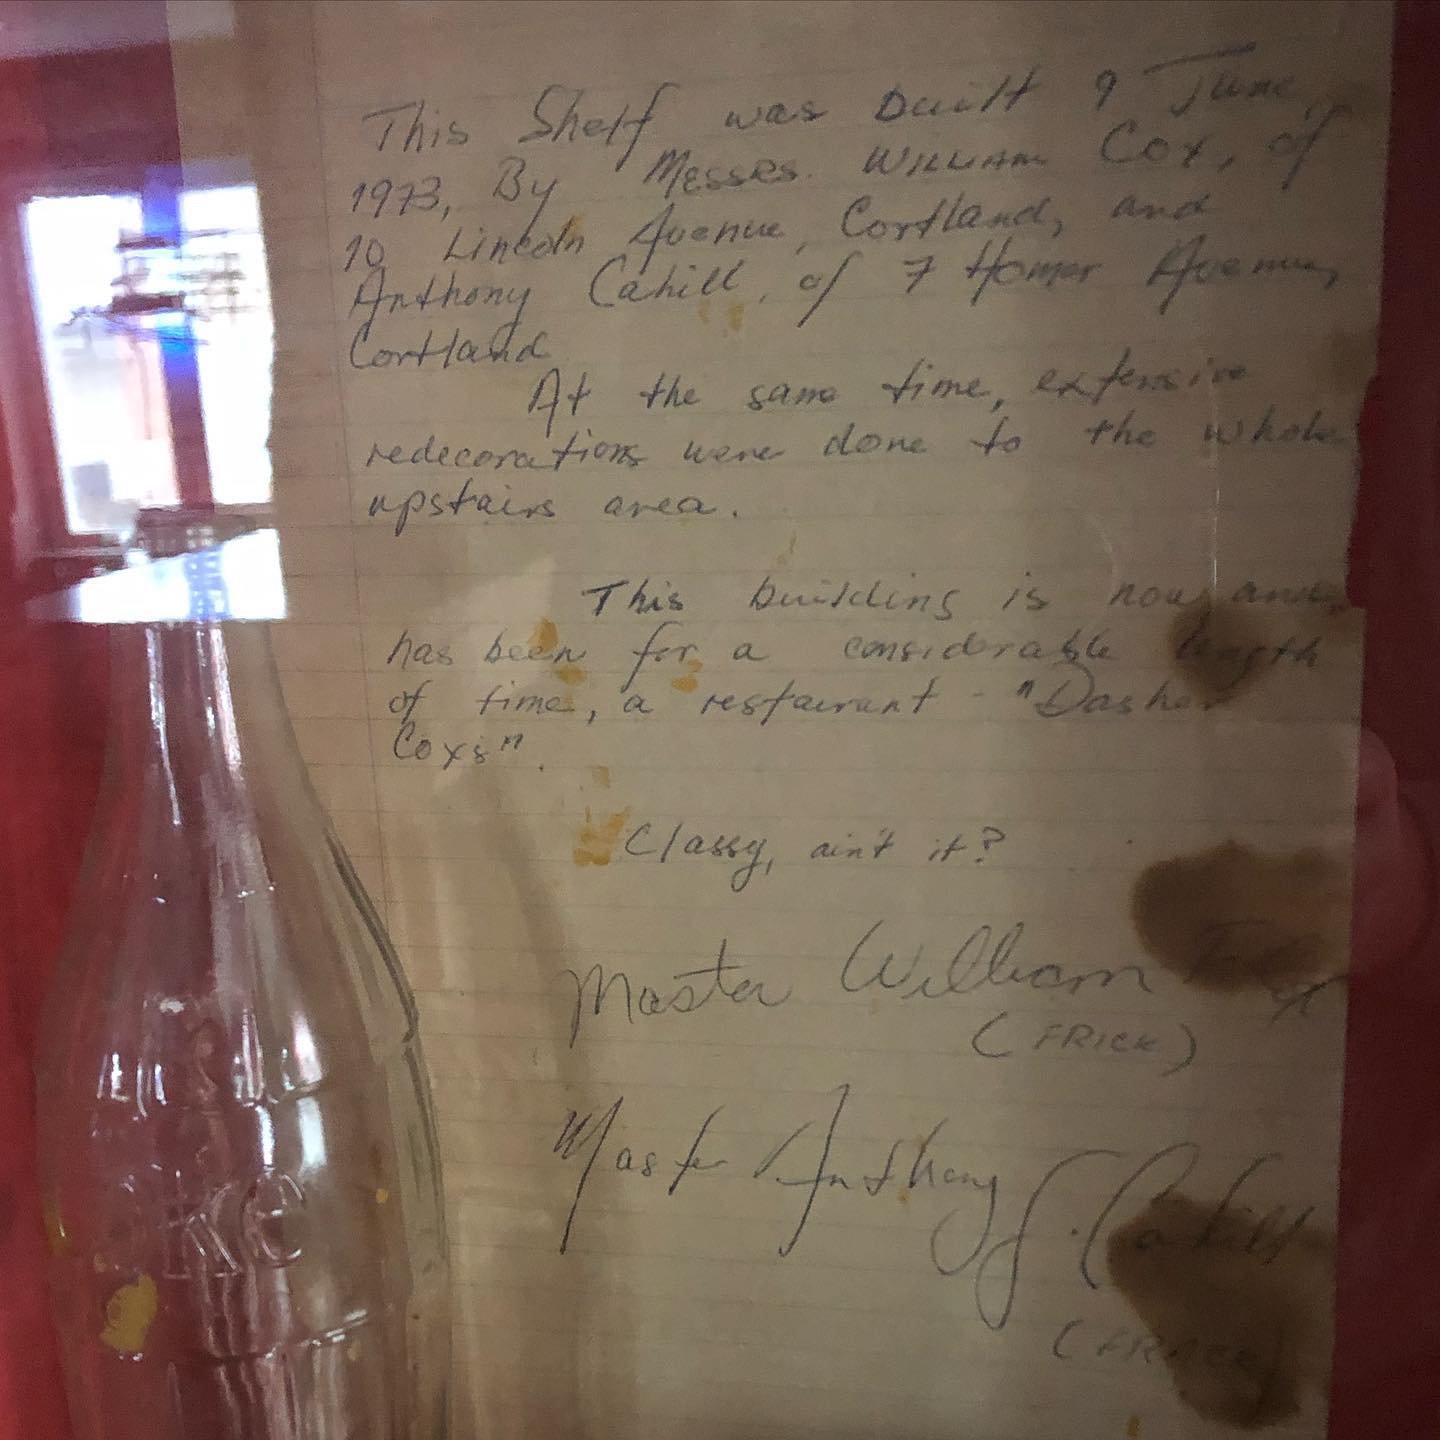 This Shelf was built 9 June,
1973, By Messrs. WILLIAM Cox, of
10 Lincoln Avenue, Cortland, and
Anthony Cahill, of 7 Homer Avenue,
Cortland
At the same time, extensive
redecorations were done to the whole
upstairs area.
This building is now and,
has been for a considerable length
of time, a restaurant - "Dasher
Coxs".
Classy, ain't it?
Master William
(FRICK)
Master Anthony J. Cahill